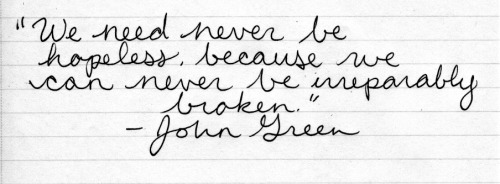 "We need never be
hopeless, because we
can never be irreparably
broken."
- John Green